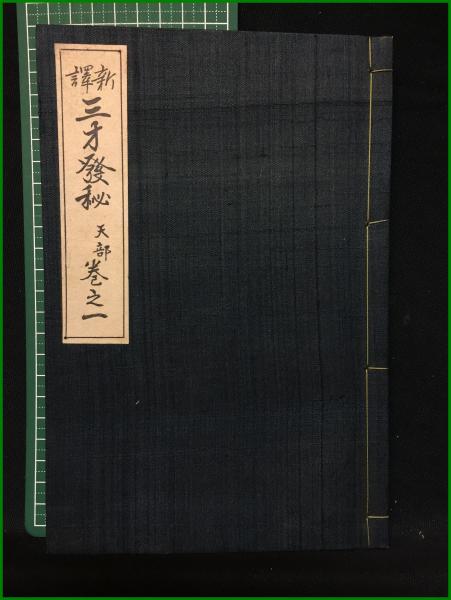 新譯
三才發秘 天部 巻之一